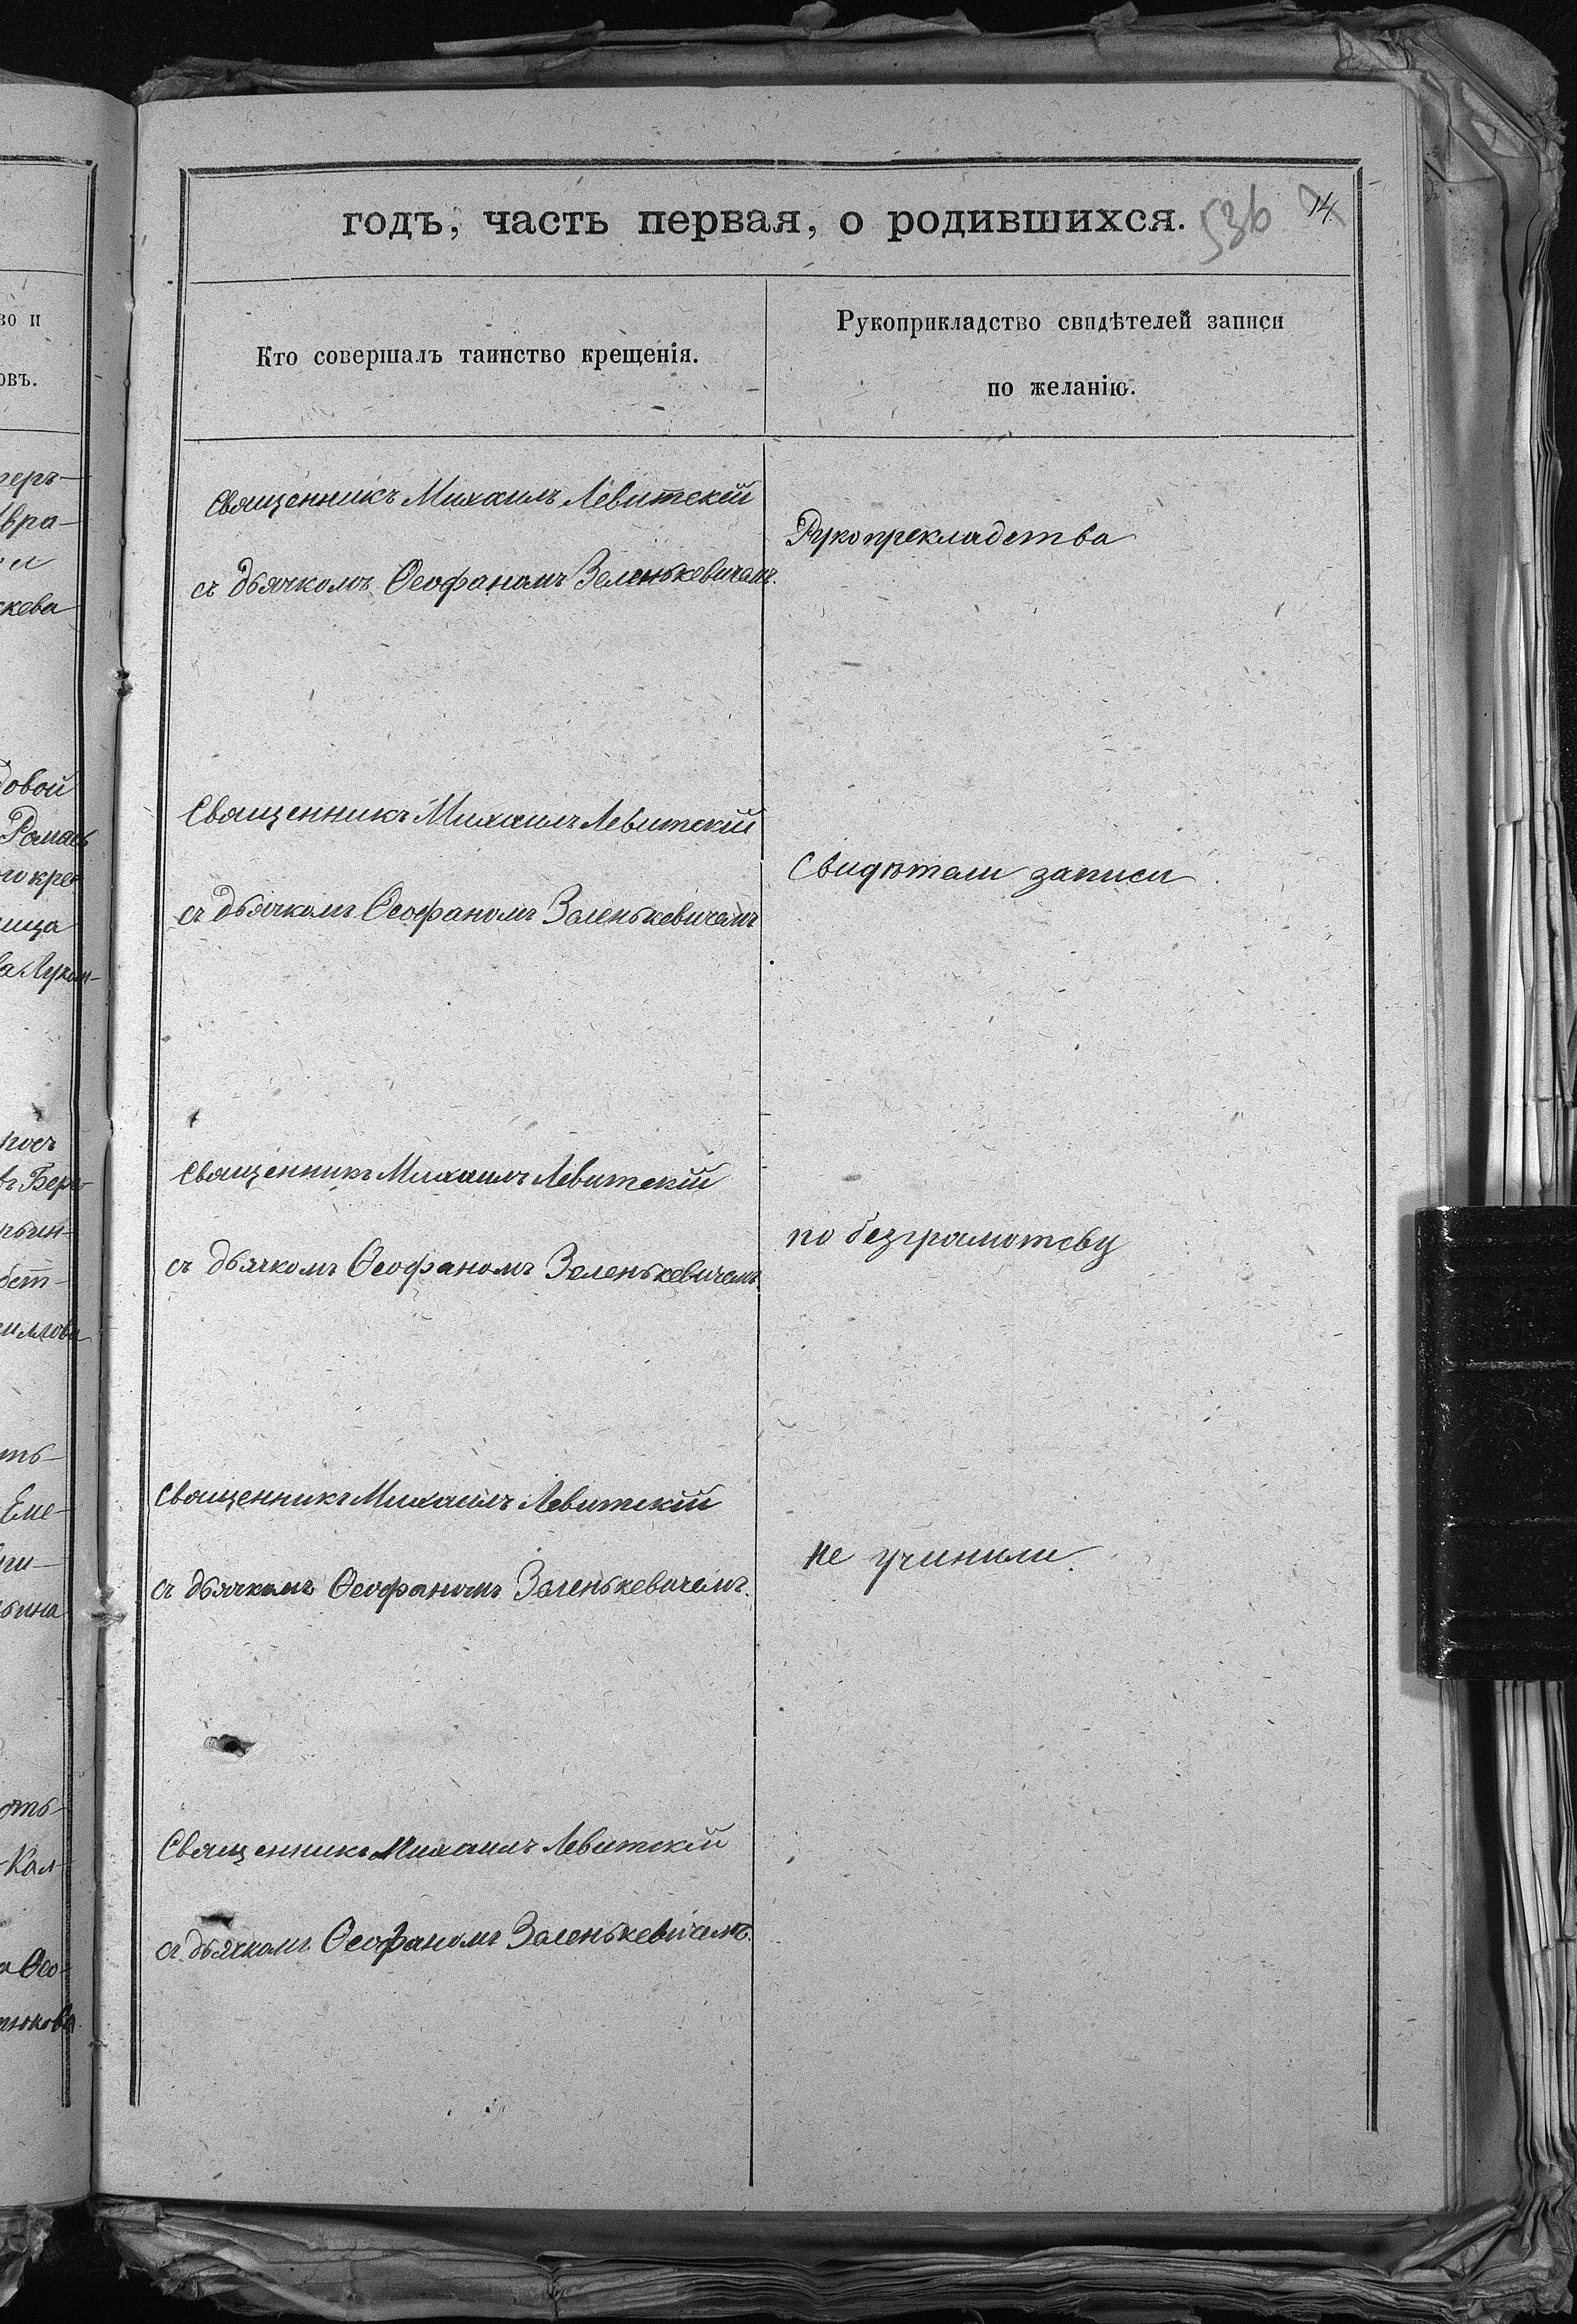 годъ, часть первая, о родившихся. 536 14
Кто совершалъ таинство крещенія.
Рукоприкладство свидѣтелей записи
по желанію.
Священникъ Михаилъ Левитскій
съ дьячкомъ Ѳеофаномъ Зеленькевичемъ.
Рукопрекладства
Священникъ Михаилъ Левитскій
съ дьячкомъ Ѳеофаномъ Зеленькевичемъ
Свидѣтели записи
Священникъ Михаилъ Левитскій
съ дьячкомъ Ѳеофаномъ Зеленькевичемъ
по безграмотсву
Священникъ Михаилъ Левитскій
съ дьячкомъ Ѳеофаномъ Зеленькевичемъ.
не учинили
Священникъ Михаилъ Левитскій
съ дьячкомъ Ѳеофаномъ Зеленькевичемъ.